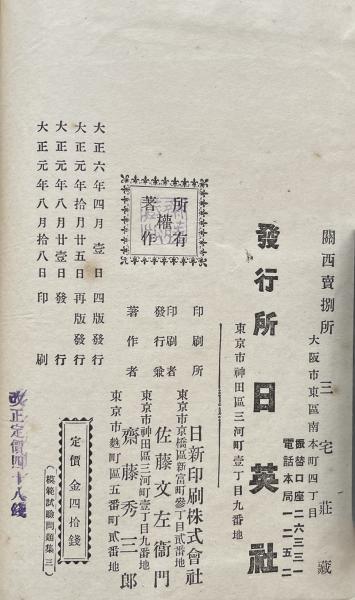 關西賣捌所 三宅莊藏
大阪市東區南本町四丁目
振替口座二六三三一
電話本局一二五二
發行所 日英社
東京市神田區三河町壹丁目九番地
印刷所 日新印刷株式會社
東京市京橋區新富町參丁目貳番地
印刷者
發行兼 佐藤文左衞門
東京市神田區三河町壹丁目九番地
著作者 齋藤秀三郎
東京市麴町區五番町貳番地
所有
權
著作
大正六年四月壹日四版發行
大正元年拾月廿五日再版發行
大正元年八月廿壹日發行
大正元年八月拾八日印刷
定價金四拾錢
(模範試驗問題集三)
改正定價四十八錢